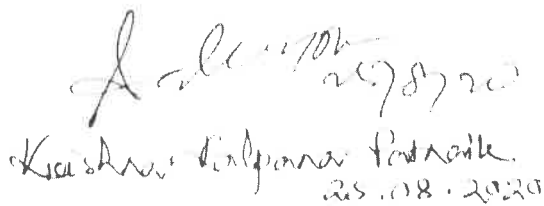 25/8/20
Krishna Kalpana Patnaik
25.08.2020